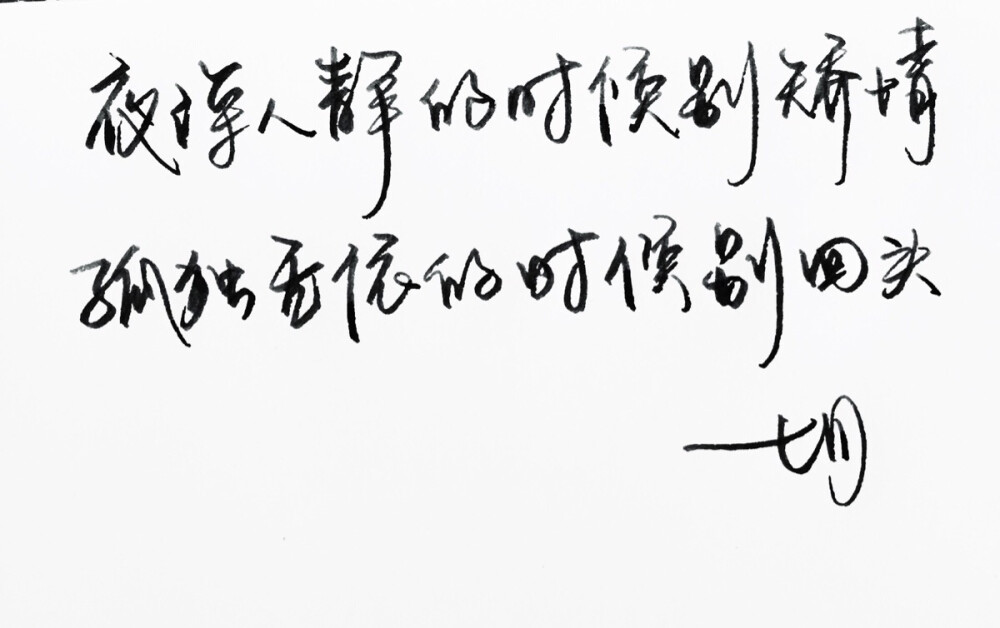 夜深人静的时候别矫情
孤独无依的时候别回头
一切